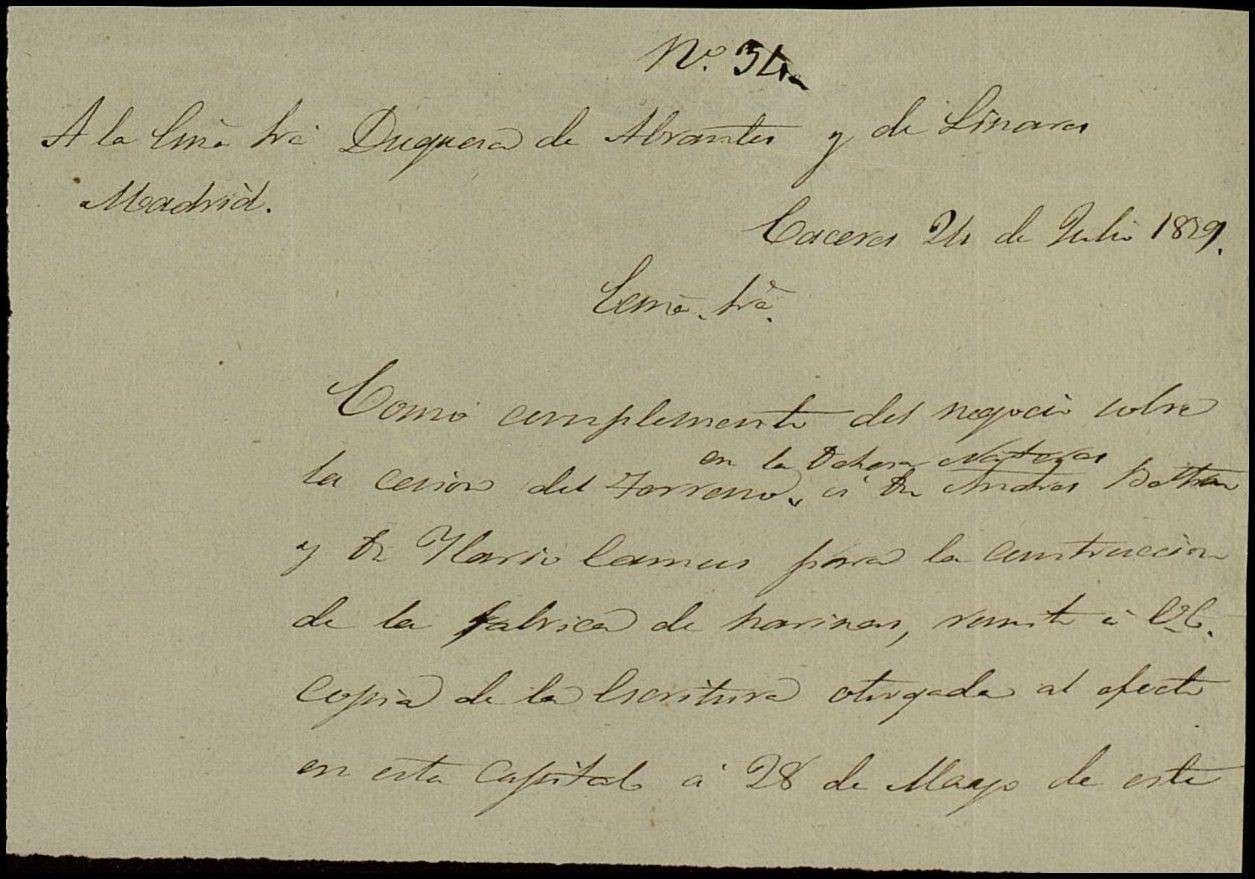 Nº. 34.
A la Exmª Srª Duquesa de Abrantes y de Linares
Madrid.
Caceres 24 de Julio 1879.
Exmª. Srª.
Como complemento del negocio sobre
en la Dehesa
la cesion del Terreno, á Dn Andres Beltran
y Dn Ylario Camus para la construccion
de la fabrica de harinas, remito á V.E.
copia de la Escritura otorgada al efecto
en esta Capital á 28 de Mayo de este